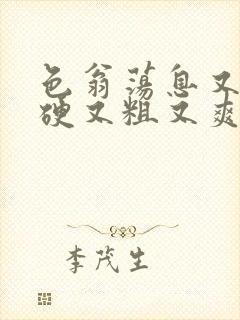 色翁荡息又
硬又粗又爽
李茂生